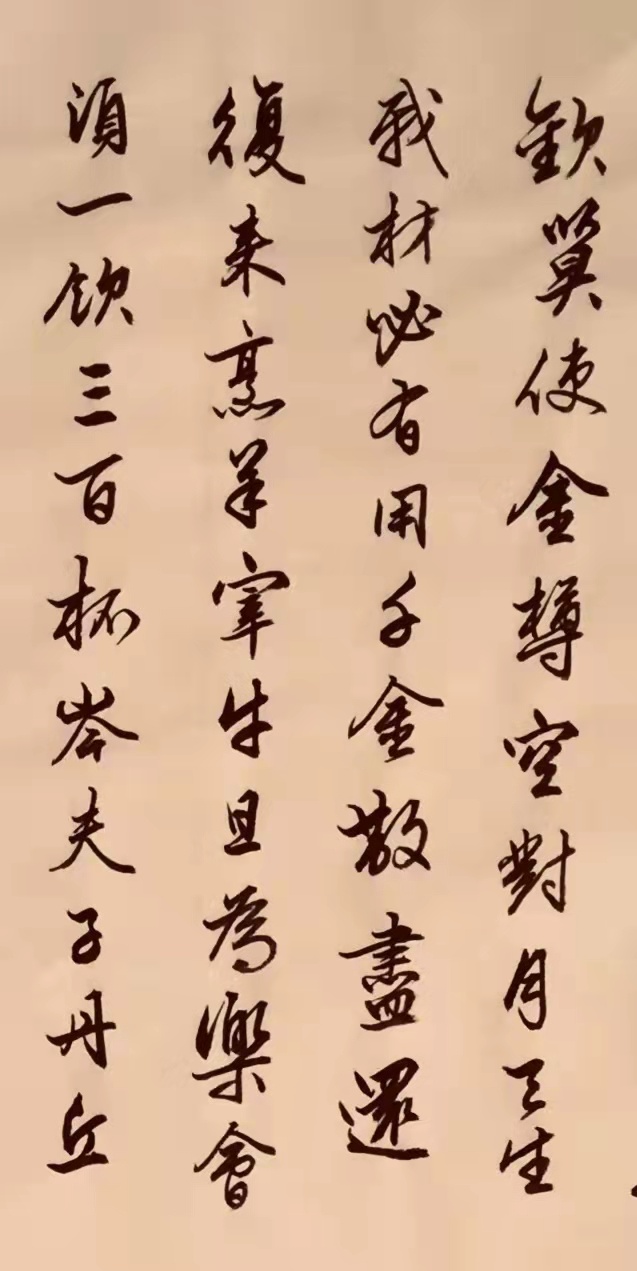 歡莫使金樽空對月天生
我材必有用千金散盡還
復来烹羊宰牛且為樂會
須一飲三百杯岑夫子丹丘